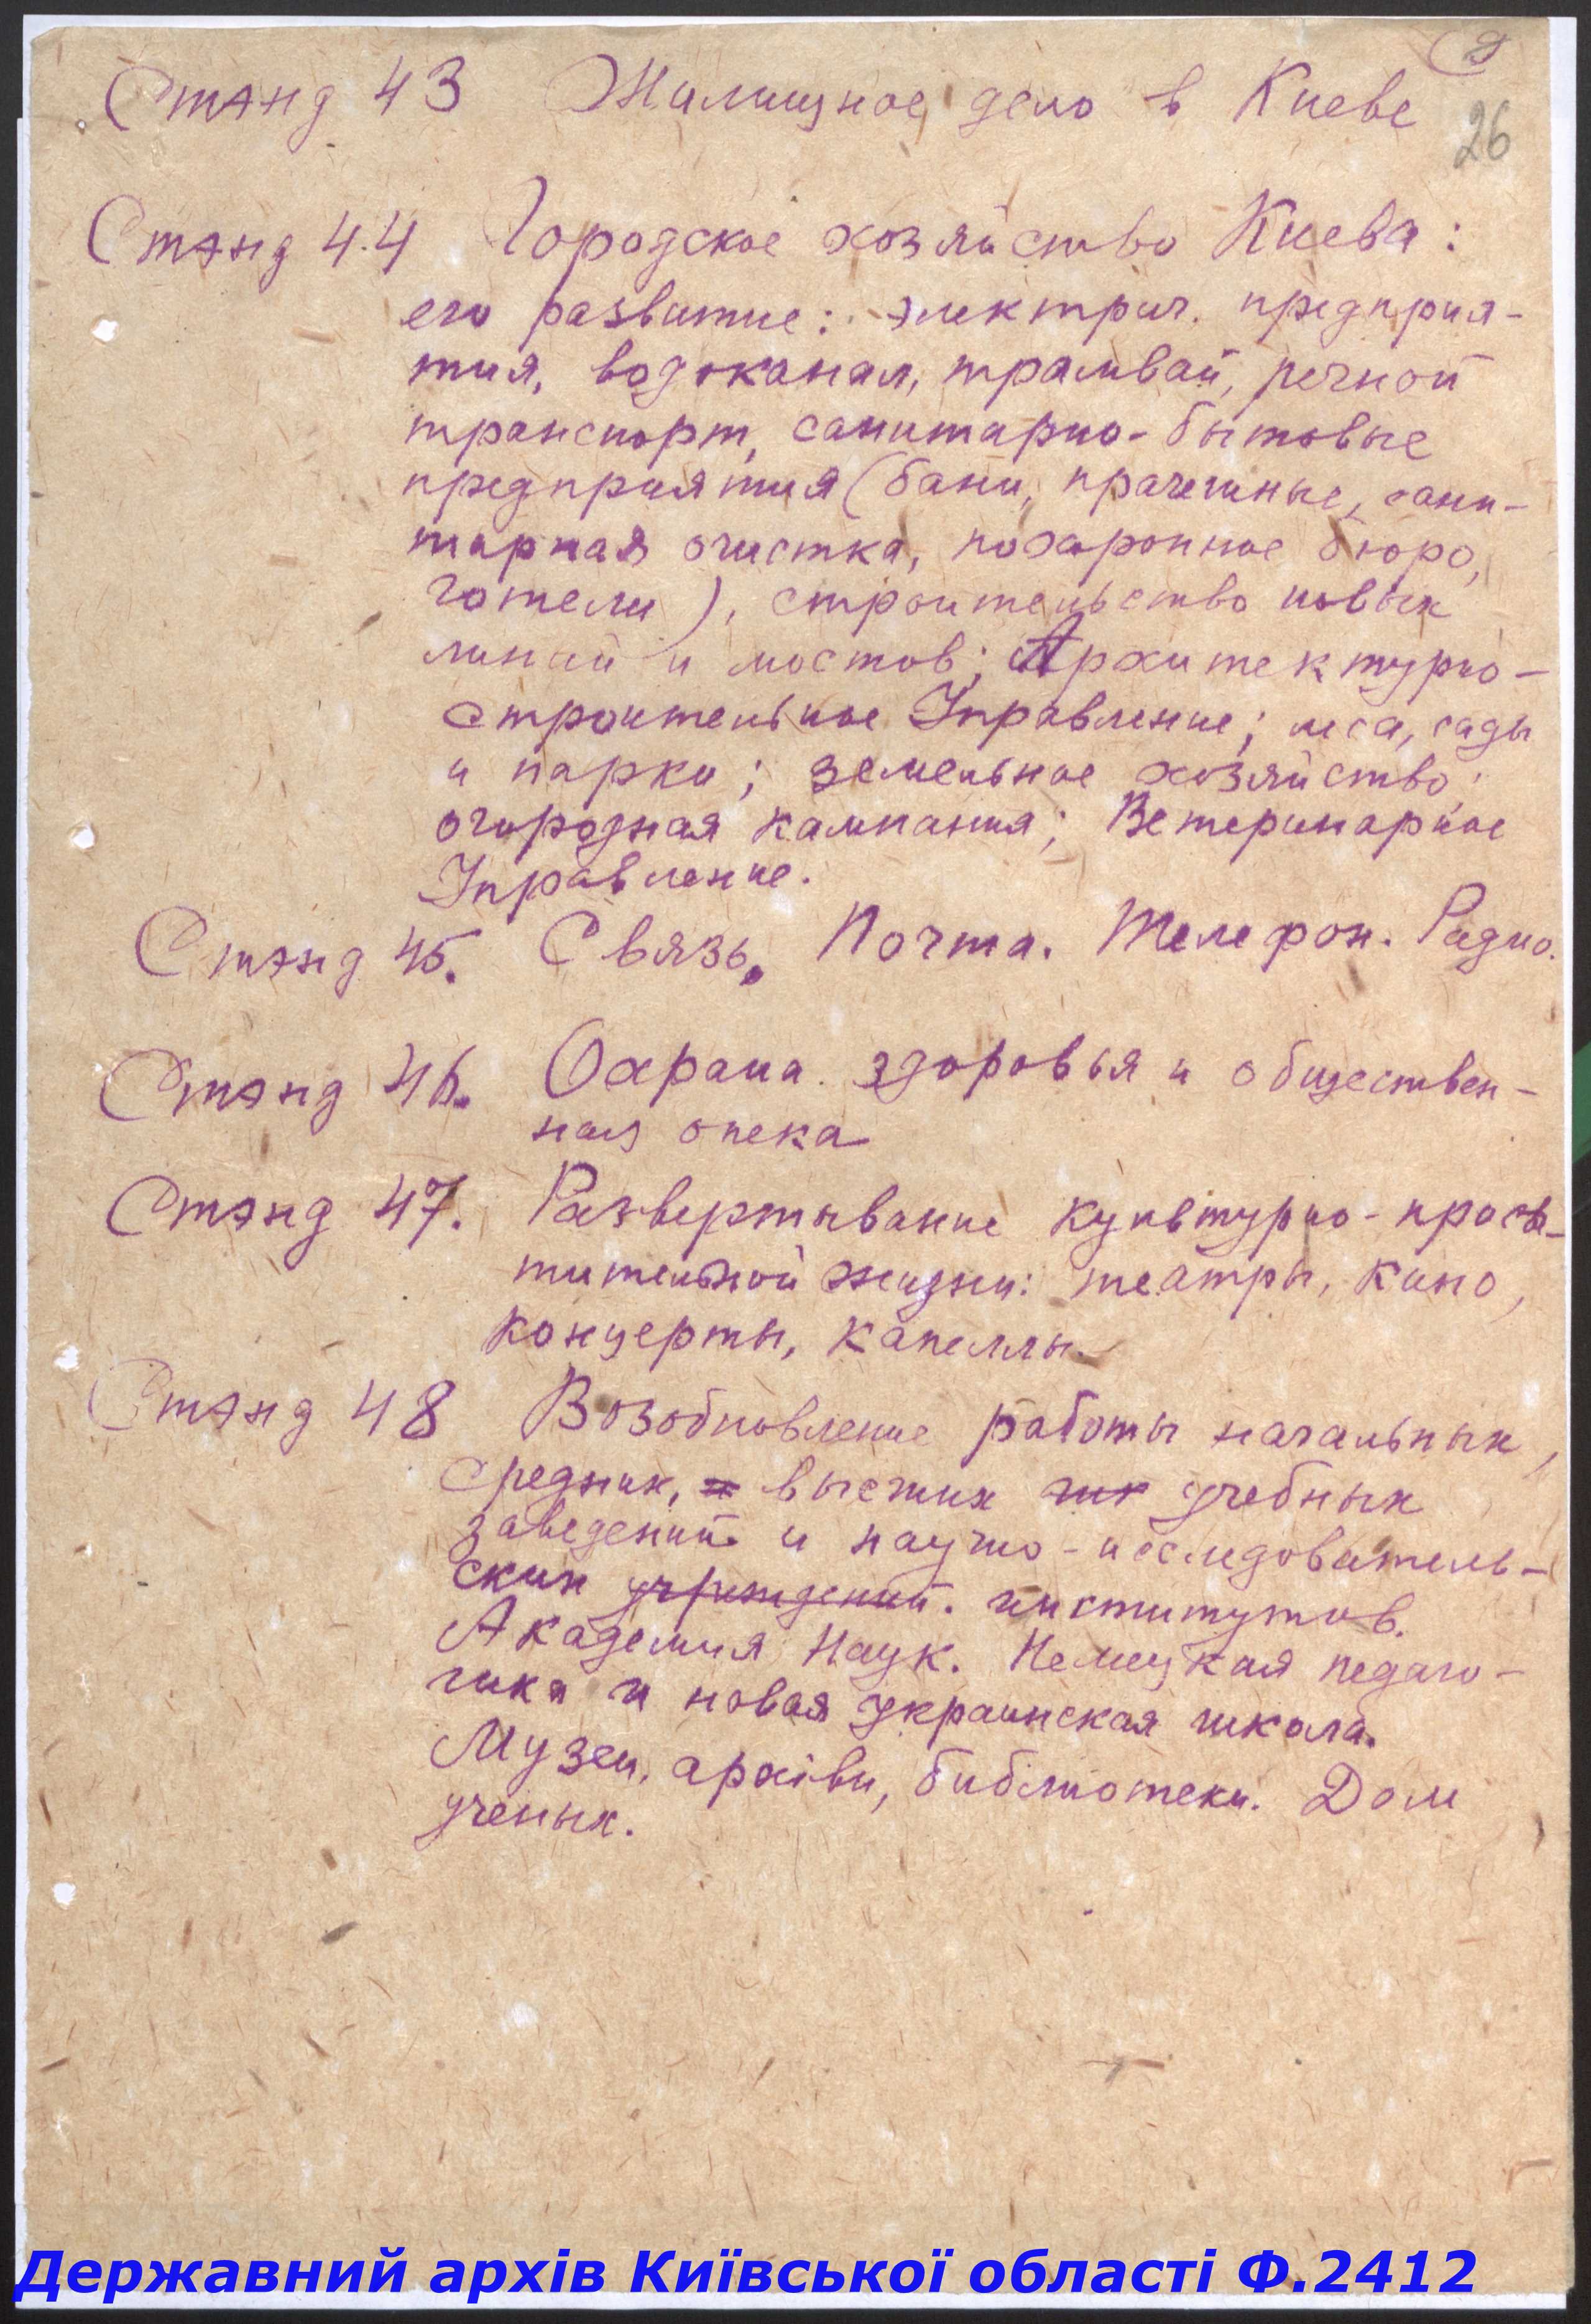 9
Стэнд 43 Жилищное дело в Киеве
26
Стэнд 44 Городское хозяйство Киева:
его развитие: электрич. предприя-
тия, водоканал, трамвай, речной
транспорт, санитарно-бытовые
предприятия (бани, прачечные, сани-
тарная очистка, похоронное бюро,
готели), строительство новых
линий и мостов; Архитектурно-
строительное Управление; леса, сады
и парки; земельное хозяйство;
огородная кампания; Ветеринарное
Управление.
Стэнд 45. Связь. Почта. Телефон. Радио.
Стэнд 46. Охрана здоровья и обществен-
ная опека
Стэнд 47. Развертывание культурно-просве-
тительной жизни: театры, кино,
концерты, капеллы.
Стэнд 48 Возобновление работы начальных,
средних, и высших учебных
заведений и научно-исследователь-
ских учреждений. институтов.
Академия Наук. Немецкая педаго-
гика и новая украинская школа.
Музеи, архівы, библиотеки. Дом
ученых.
Державний архів Київської області Ф.2412